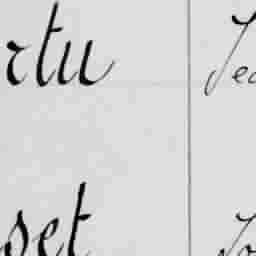 rtu Jea
set Jo